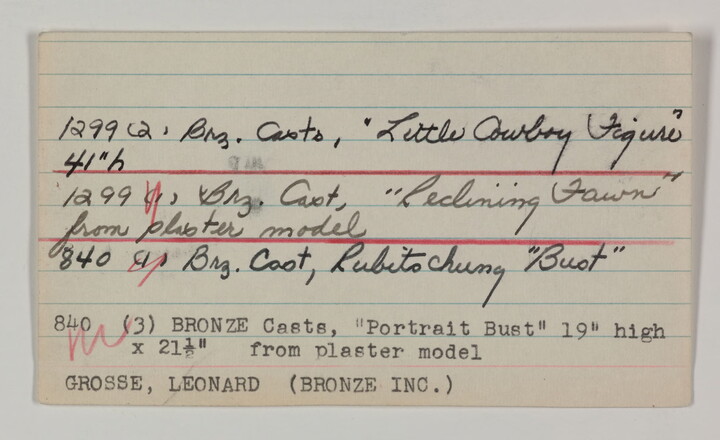 1299 (2) Brz. Casts, "Little Cowboy Figure"
41"h
1299 (1) Brz. Cast, "Reclining Fawn"
from plaster model
840 (1) Brz. Cast, "Bust"
840 (3) BRONZE Casts, "Portrait Bust" 19" high
x 21½" from plaster model
GROSSE, LEONARD (BRONZE INC.)